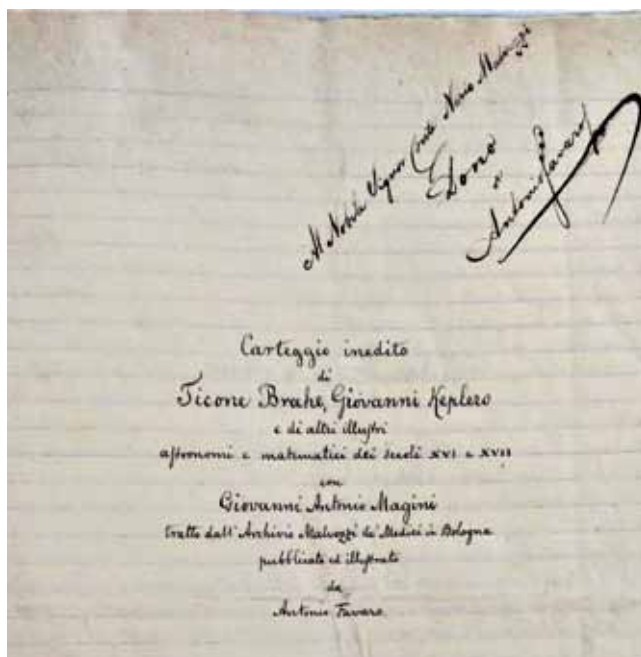 Al Nobile Signor Conte Nerio Malvezzi
Dono
di
Antonio Favaro
Carteggio inedito
di
Ticone Brahe, Giovanni Keplero
e di altri illustri
astronomi e matematici dei secoli XVI e XVII
con
Giovanni Antonio Magini
tratto dall'Archivio Malvezzi de' Medici in Bologna
pubblicato ed illustrato
da
Antonio Favaro.